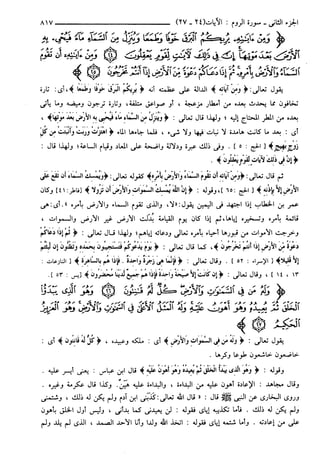 الجزء الثانى - سورة الروم : الآيات (٢٤ - ٢٧) ٨١٧
وَمِنْ آيَاتِهِ يُرِيكُمُ الْبَرْقَ خَوْفًا وَطَمَعًا وَيُنَزِّلُ مِنَ السَّمَاءِ مَاءً فَيُحْيِي بِهِ
الْأَرْضَ بَعْدَ مَوْتِهَا إِنَّ فِي ذَلِكَ لَآيَاتٍ لِقَوْمٍ يَعْقِلُونَ وَمِنْ آيَاتِهِ أَنْ تَقُومَ
السَّمَاءُ وَالْأَرْضُ بِأَمْرِهِ ثُمَّ إِذَا دَعَاكُمْ دَعْوَةً مِنَ الْأَرْضِ إِذَا أَنْتُمْ تَخْرُجُونَ
يقول تعالى : ﴿ ومن آياته ﴾ الدالة على عظمته أنه ﴿ يريكم البرق خوفا وطمعا ﴾ ، أى : تارة
تخافون مما يحدث بعده من أمطار مزعجة ، أو صواعق متلفة ، وتارة ترجون وميضه وما يأتى
بعده من المطر المحتاج إليه ؛ ولهذا قال تعالى : ﴿ وينزل من السماء ماء فيحيي به الأرض بعد موتها ﴾ ،
أى : بعد ما كانت هامدة لا نبات فيها ولا شىء ، فلما جاءها الماء ﴿ اهتزت وربت وأنبتت من كل
زوج بهيج ﴾ [ الحج : ٥ ] . وفى ذلك عبرة ودلالة واضحة على المعاد وقيام الساعة ؛ ولهذا قال :
﴿ إن في ذلك لآيات لقوم يعقلون ﴾ .
ثم قال تعالى : ﴿ ومن آياته أن تقوم السماء والأرض بأمره ﴾ كقوله تعالى : ﴿ ويمسك السماء أن تقع على
الأرض إلا بإذنه ﴾ [ الحج : ٦٥ ] ، وقوله : ﴿ إن الله يمسك السموات والأرض أن تزولا ﴾ [ فاطر : ٤١ ] وكان
عمر بن الخطاب إذا اجتهد فى اليمين يقول : لا ، والذى تقوم السماء والأرض بأمره . أى : هى
قائمة بأمره وتسخيره إياها ، ثم إذا كان يوم القيامة بدلت الأرض غير الأرض والسموات ،
وخرجت الأموات من قبورها أحياء بأمره تعالى ودعائه إياهم ؛ ولهذا قال تعالى : ﴿ ثم إذا دعاكم
دعوة من الأرض إذا أنتم تخرجون ﴾ ، كما قال تعالى : ﴿ يوم يدعوكم فتستجيبون بحمده وتظنون إن لبثتم
إلا قليلا ﴾ [ الإسراء : ٥٢ ] . وقال تعالى : ﴿ فإنما هي زجرة واحدة . فإذا هم بالساهرة ﴾ [ النازعات :
١٣ ، ١٤ ] ، وقال تعالى : ﴿ إن كانت إلا صيحة واحدة فإذا هم جميع لدينا محضرون ﴾ [ يس : ٥٣ ] .
وَلَهُ مَنْ فِي السَّمَوَاتِ وَالْأَرْضِ كُلٌّ لَهُ قَانِتُونَ وَهُوَ الَّذِي يَبْدَأُ
الْخَلْقَ ثُمَّ يُعِيدُهُ وَهُوَ أَهْوَنُ عَلَيْهِ وَلَهُ الْمَثَلُ الْأَعْلَى فِي السَّمَوَاتِ وَالْأَرْضِ وَهُوَ الْعَزِيزُ
الْحَكِيمُ
يقول تعالى : ﴿ وله من في السموات والأرض ﴾ أى : ملكه وعبيده ، ﴿ كل له قانتون ﴾ أى :
خاضعون خاشعون طوعا وكرها .
وقوله : ﴿ وهو الذي يبدأ الخلق ثم يعيده وهو أهون عليه ﴾ قال ابن عباس : يعنى أيسر عليه .
وقال مجاهد : الإعادة أهون عليه من البداءة ، والبداءة عليه هين . وكذا قال عكرمة وغيره .
وروى البخارى عن النبى ﷺ قال : « قال الله تعالى : كذبنى ابن آدم ولم يكن له ذلك ، وشتمنى
ولم يكن له ذلك . فأما تكذيبه إياى فقوله : لن يعيدنى كما بدأنى ، وليس أول الخلق بأهون
على من إعادته . وأما شتمه إياى فقوله : اتخذ الله ولدا وأنا الأحد الصمد ، الذى لم يلد ولم